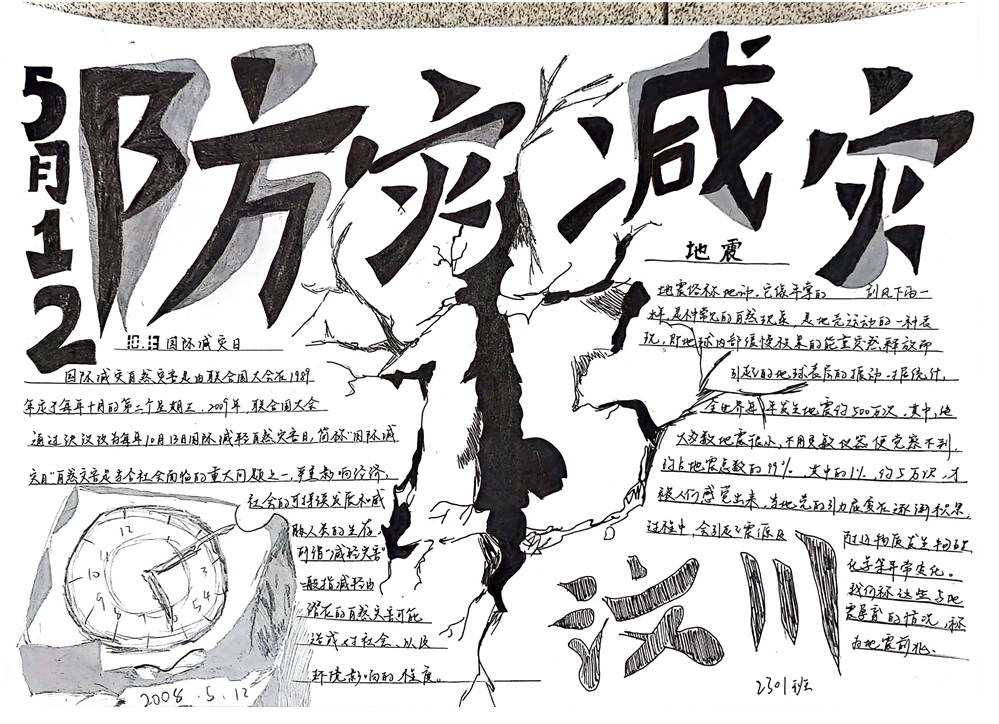 5月12
防灾减灾
10.13国际减灾日
国际减灾自然灾害是由联合国大会在1989
年定于每年十月的第二个星期三.2009年,联合国大会
通过决议改为每年10月13日国际减轻自然灾害日,简称"国际减
灾日"自然灾害是当今社会面临的重大问题之一,严重影响经济,
社会的可持续发展和威
胁人类的生存.
所谓"减轻灾害"
一般指减轻由
潜在的自然灾害可能
造成对社会,以及
环境影响的程度。
12
2008.5.12
地震
地震俗称地动.它像平常的 刮风下雨一
样,是种常见的自然现象,是地壳运动的一种表
现,即地球内部缓慢积累的能量突然释放而
引起的地球表层的振动.据统计,
全世界每年发生地震约500万次.其中,绝
大多数地震很小,不用灵敏仪器便觉察不到.
约占地震总数的99%.其中的1%,约5万次,才
被人们感觉出来.当地壳的引力应变在逐渐积累,
过程中,会引起震源及
附近物质发生物理
化学等异常变化。
我们称这些与地
震孕育的情况,称
为地震前兆.
汶川
2301班